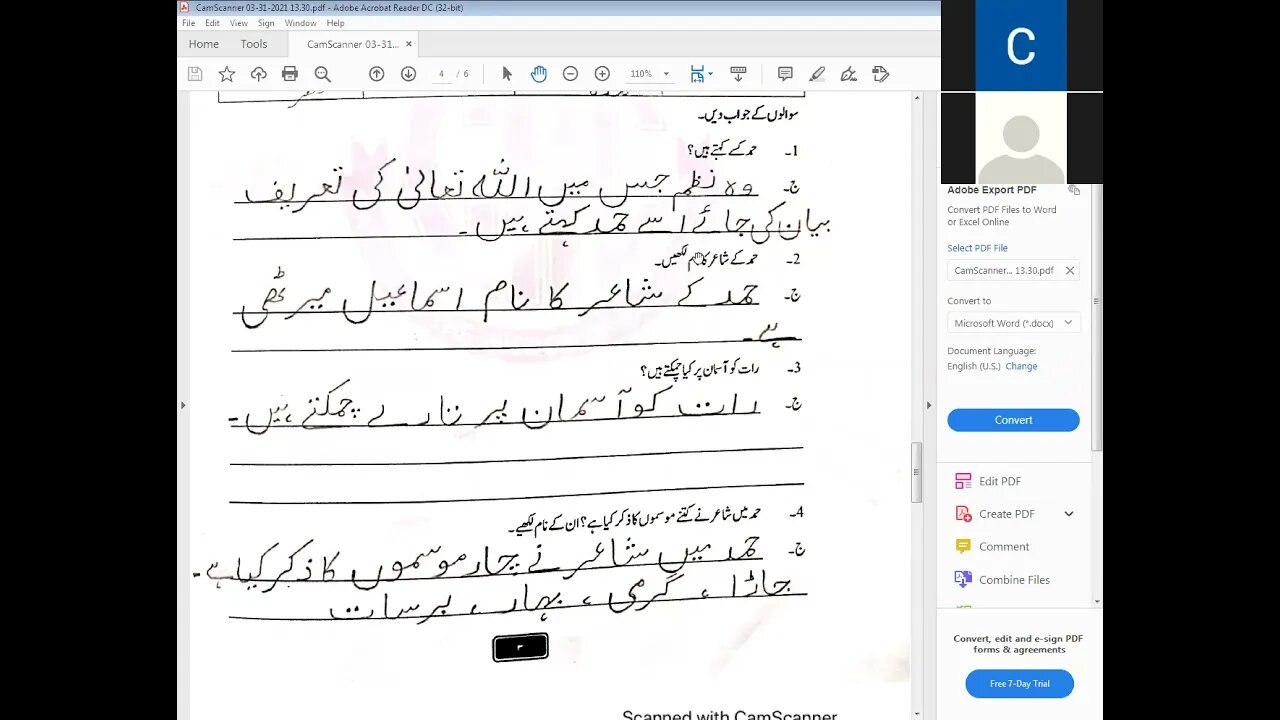 CamScanner 03-31-2021 13.30.pdf - Adobe Acrobat Reader DC (32-bit)
File Edit View Sign Window Help
Home Tools CamScanner 03-31... ×
4 / 6 110%
C
سوالوں کے جواب دیں۔
1۔ حمد کسے کہتے ہیں؟
ج۔ وہ نظم جس میں اللہ تعالیٰ کی تعریف
بیان کی جائے اسے حمد کہتے ہیں۔
2۔ حمد کے شاعر کا نام لکھیں۔
ج۔ حمد کے شاعر کا نام اسماعیل میرٹھی
ہے۔
3۔ رات کو آسمان پر کیا چمکتے ہیں؟
ج۔ رات کو آسمان پر تارے چمکتے ہیں۔
4۔ حمد میں شاعر نے کتنے موسموں کا ذکر کیا ہے؟ ان کے نام لکھیے۔
ج۔ حمد میں شاعر نے چار موسموں کا ذکر کیا ہے۔
جاڑا ، گرمی ، بہار ، برسات
۳
Scanned with CamScanner
Adobe Export PDF
Convert PDF Files to Word
or Excel Online
Select PDF File
CamScanner... 13.30.pdf ×
Convert to
Microsoft Word (*.docx)
Document Language:
English (U.S.) Change
Convert
Edit PDF
Create PDF
Comment
Combine Files
Convert, edit and e-sign PDF
forms & agreements
Free 7-Day Trial